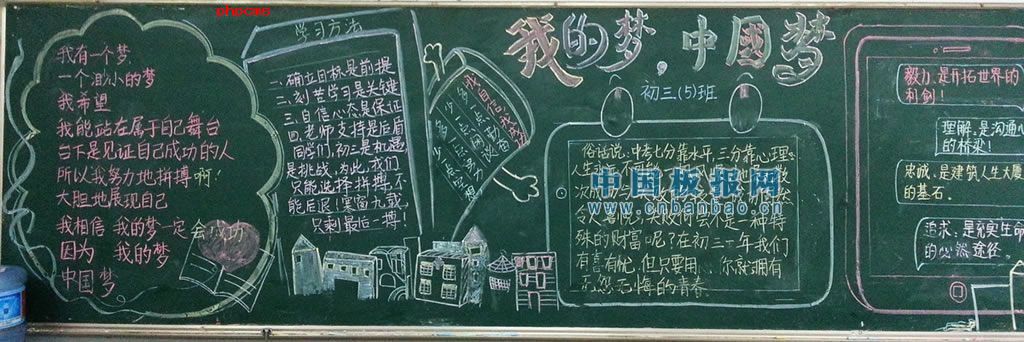 phpcms
我的梦,中国梦
初三(5)班
我有一个梦
一个渺小的梦
我希望
我能站在属于自己舞台
台下是见证自己成功的人
所以我努力地拼搏啊!
大胆地展现自己
我相信 我的梦一定会成功
因为 我的梦
中国梦
学习方法
一、确立目标是前提
二、刻苦学习是关键
三、自信心态是保证
四、老师支持是后盾
同学们,初三是机遇
是挑战,为此,我们
只能选择拼搏,不
能后退!寒窗九载,
只剩最后一搏!
我自信我成功
俗话说:中考七分靠水平,三分靠心理。
殊的财富呢?在初三一年我们
有喜有忧,但只要 你就拥有
无怨无悔的青春
中国板报网
www.cnbanbao.cn
毅力,是开拓世界的
利剑!
理解,是沟通心
的桥梁!
忠诚,是建筑人生大厦
的基石.
追求,是充实生命
的必然途径。